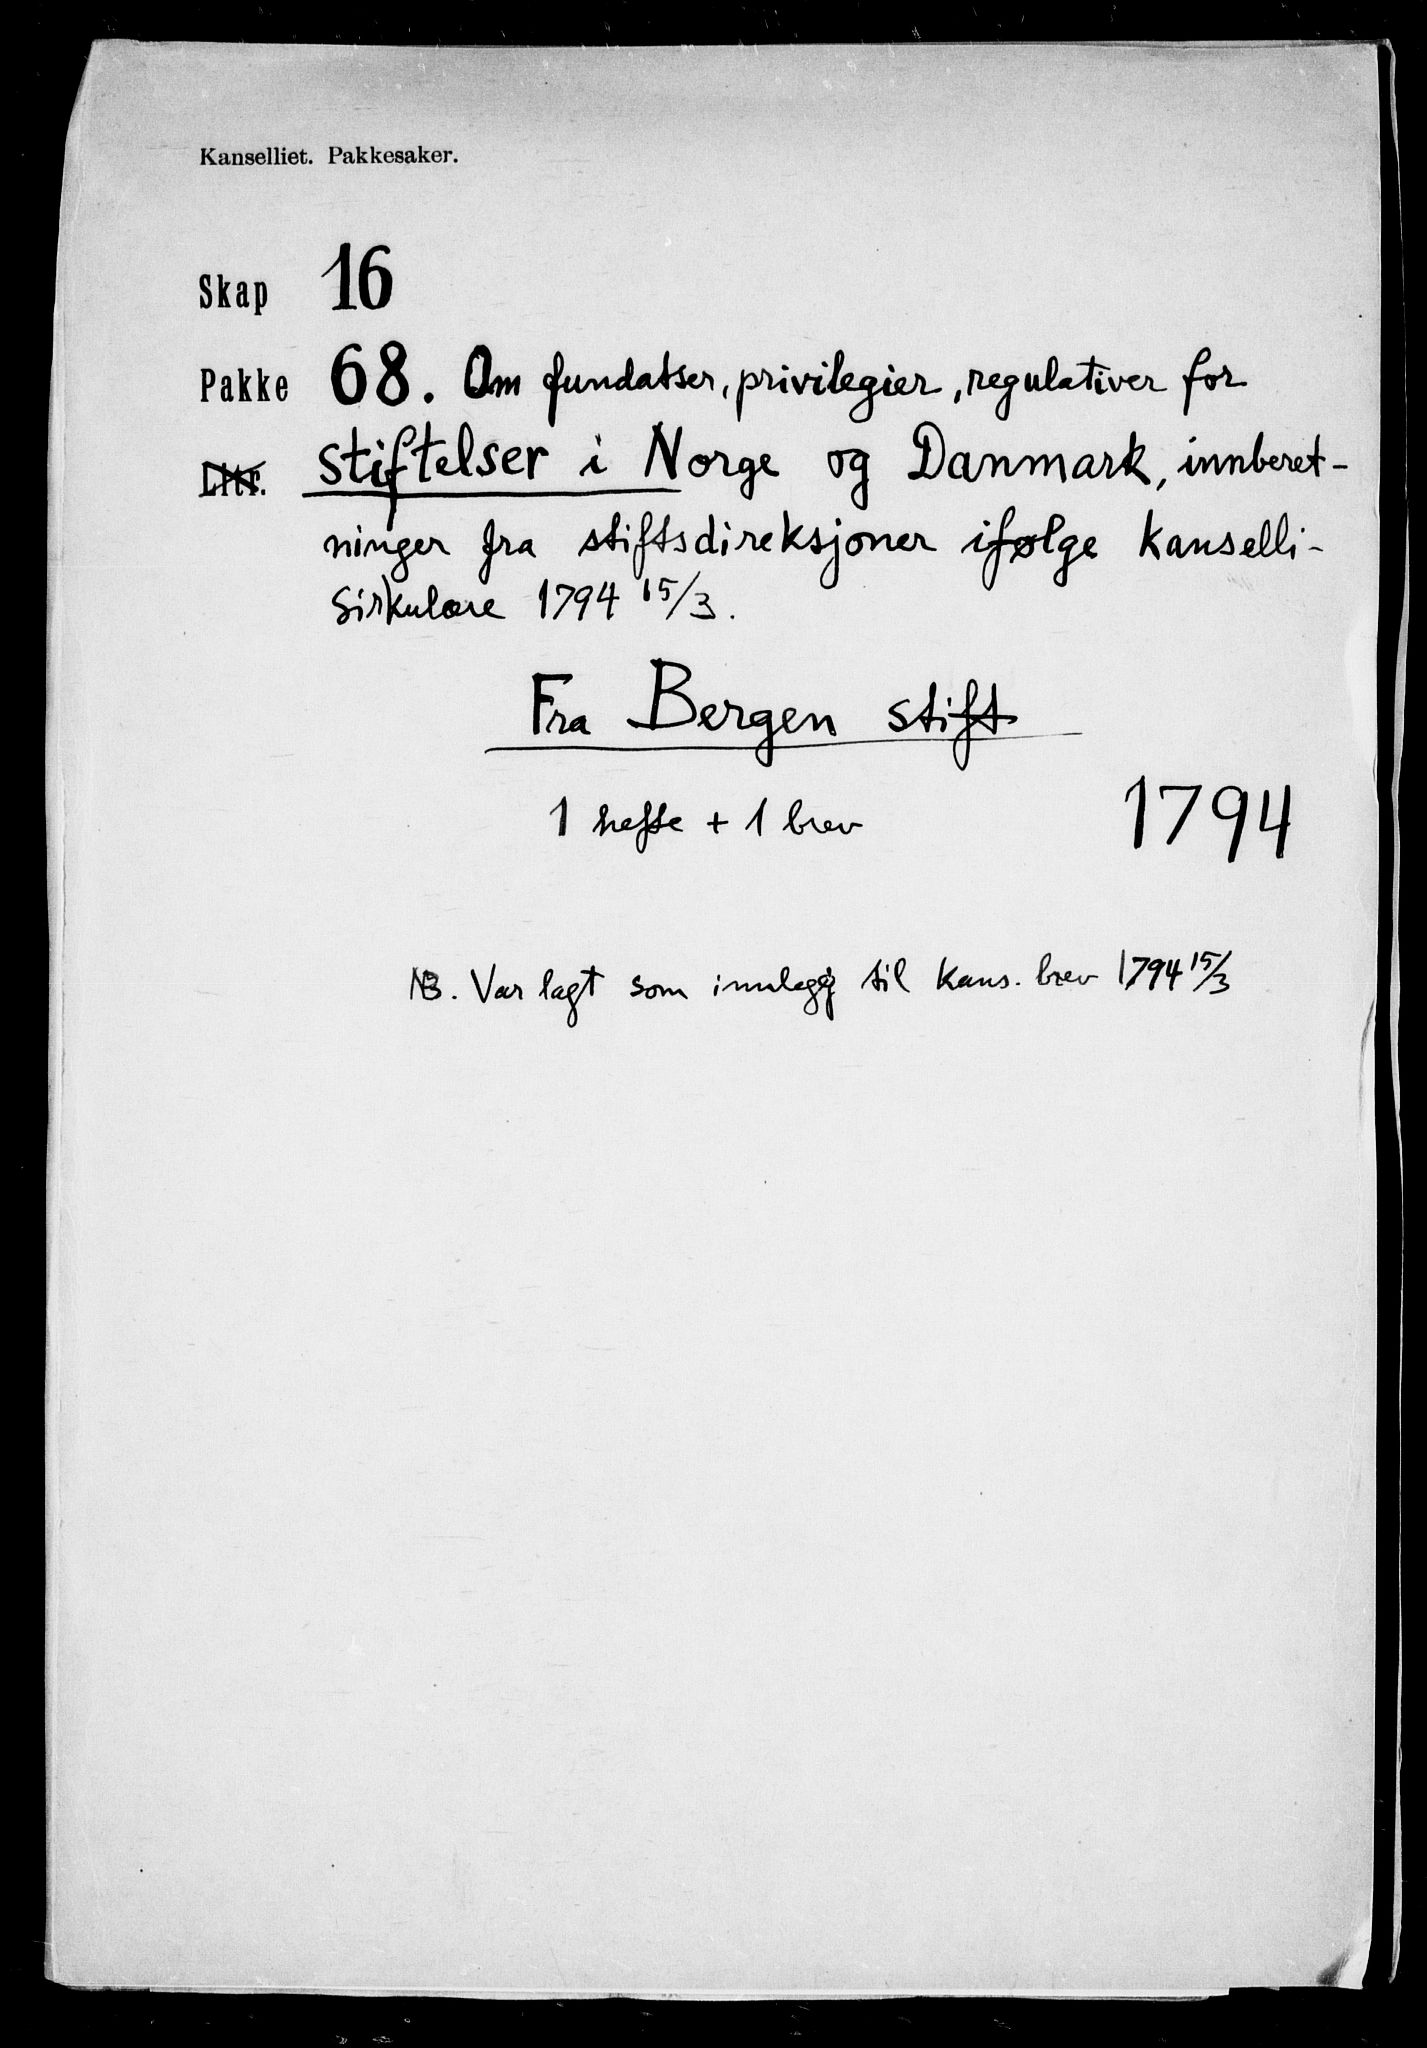 Kanselliet. Pakkesaker.
Skap 16
Pakke 68. Om fundatser, privilegier, regulativer for
Litr. stiftelser i Norge og Danmark, innberet-
ninger fra stiftsdireksjoner ifølge kanselli-
sirkulære 1794 15/3.
Fra Bergen stift
1 hefte + 1 brev 1794
NB. Var lagt som innlegg til kans. brev 1794 15/3